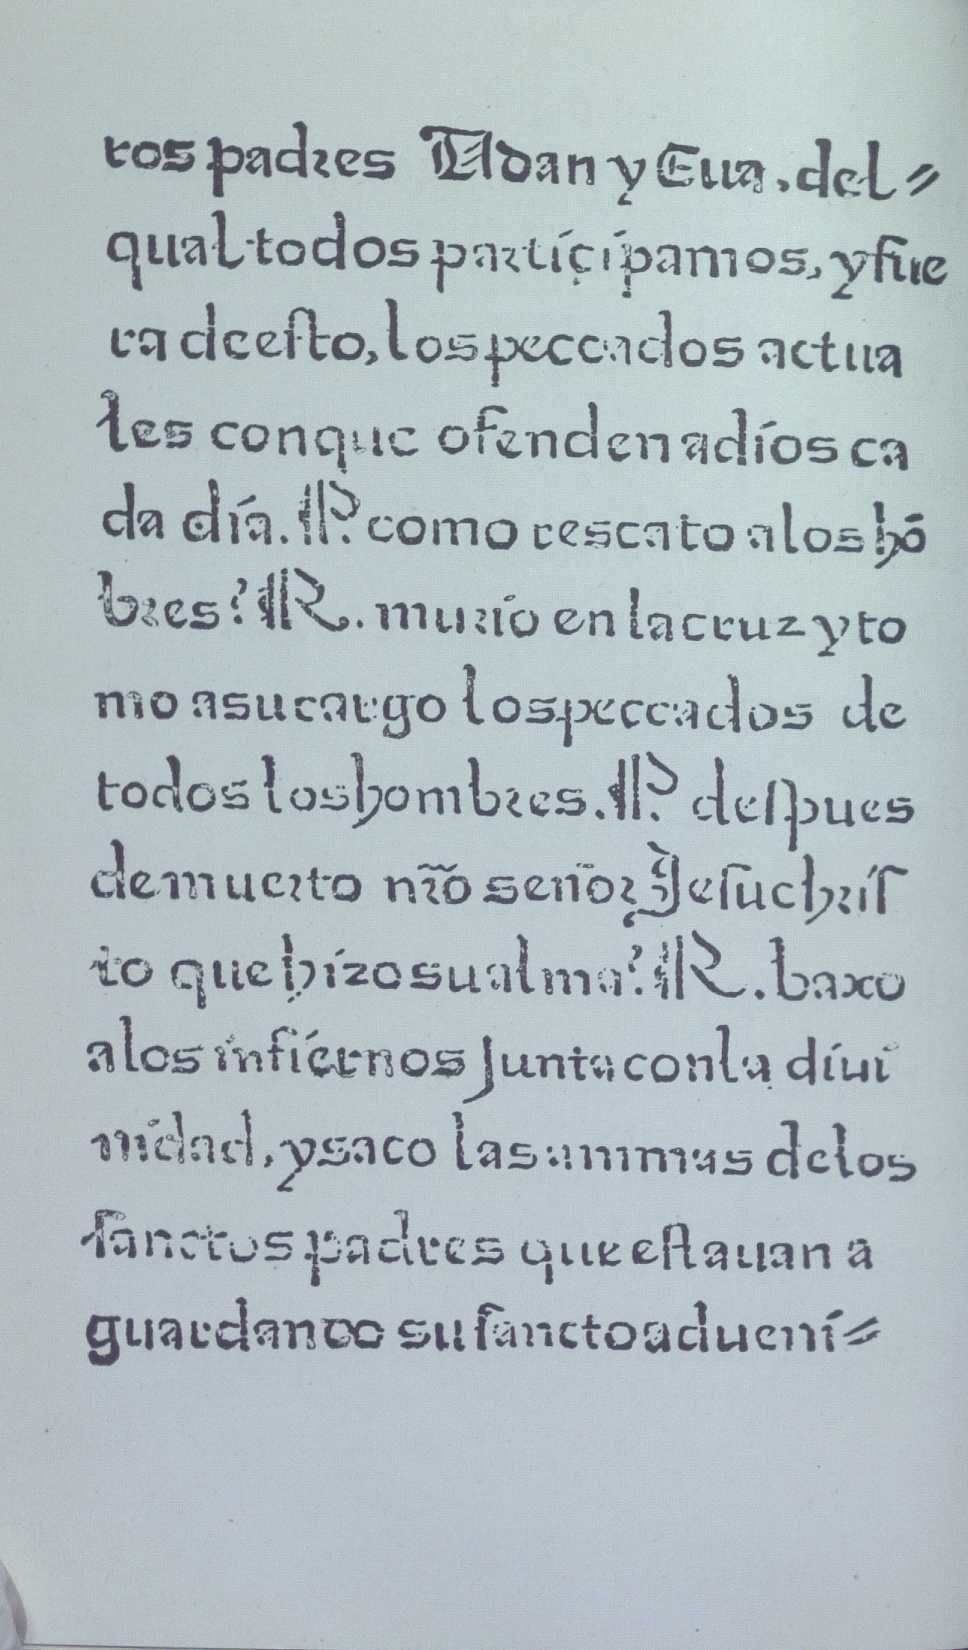 ros padres Adan y Eua, del=
qual todos partiçipamos, y fue
ra deesto, los peccados actua
les conque ofenden adios ca
da dia. P. como rescato alos hō
bres? R. murio en la cruz y to
mo asu cargo los peccados de
todos los hombres. P. despues
de muerto nr̃o señor Jesuchris
to que hizo su alma? R. baxo
alos infiernos junta con la diui
nidad, y saco las animas delos
sanctos padres que estauan a
guardando su sancto adueni=